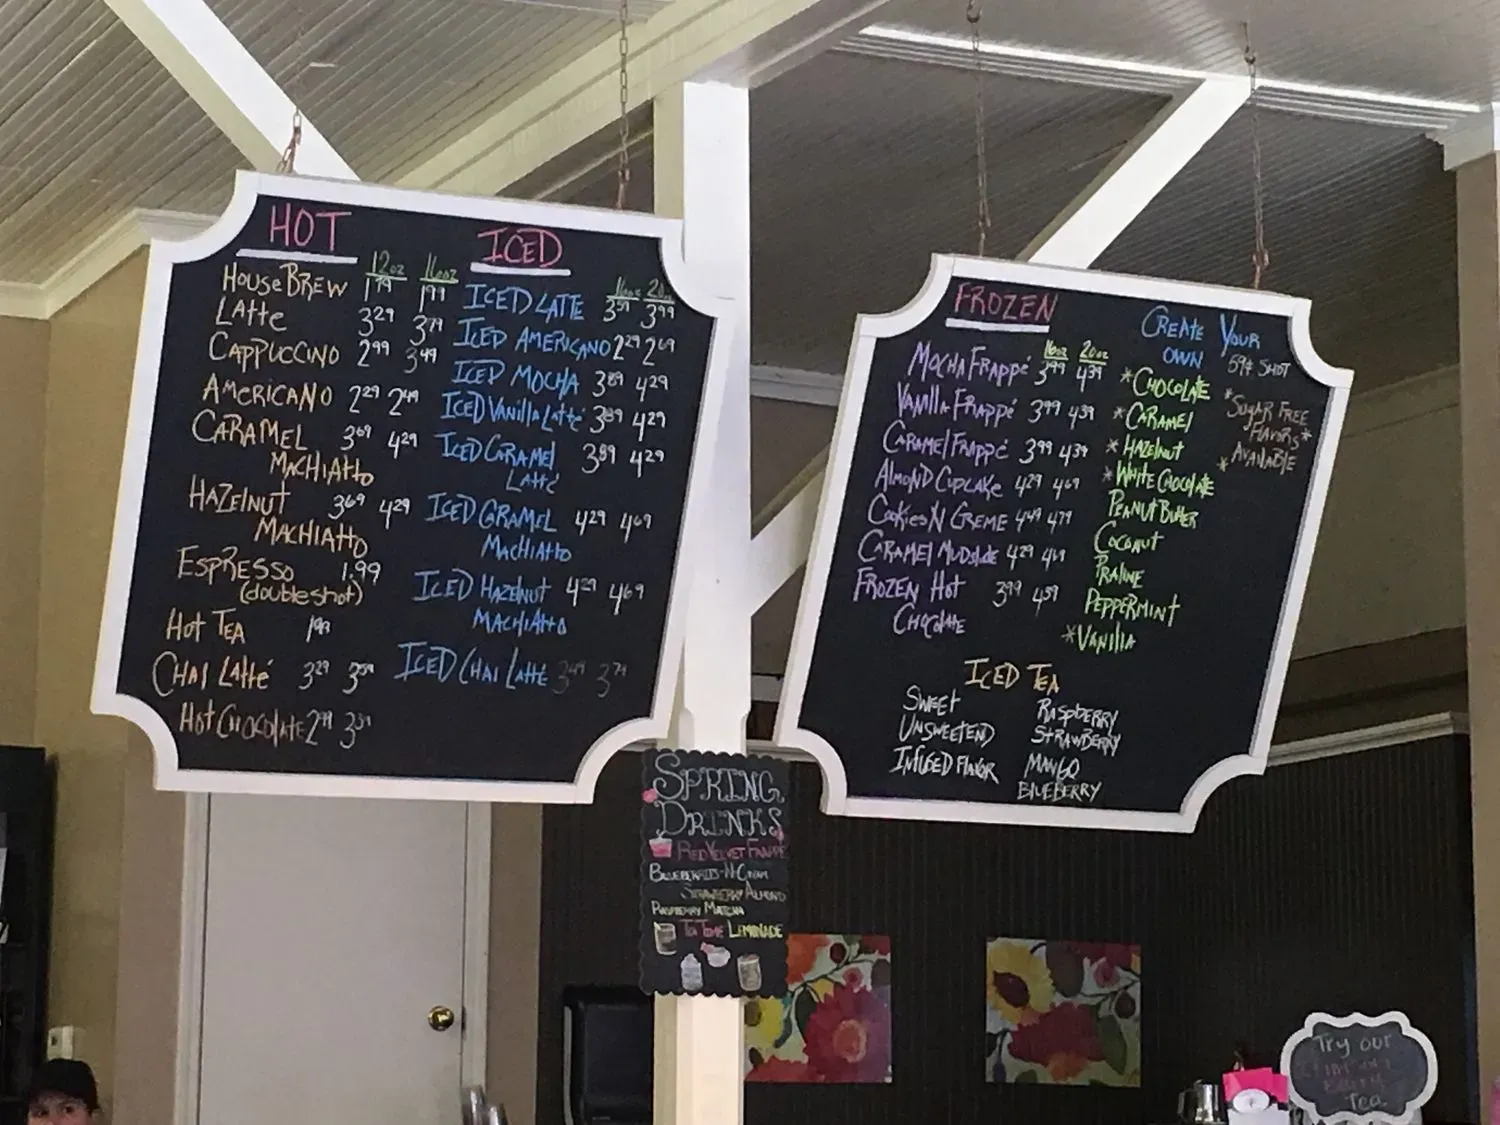 HOT
12oz 16oz
HOUSE BREW 1.79 1.99
LATTE 3.29 3.79
CAPPUCCINO 2.99 3.49
AMERICANO 2.29 2.49
CARAMEL 3.69 4.29
MACHIATTO
HAZELNUT 3.69 4.29
MACHIATTO
ESPRESSO 1.99
(doubleshot)
HOT TEA 1.99
CHAI LATTÉ 3.29 3.59
HOT CHOCOLATE
ICED
16oz 20oz
ICED LATTE 3.59 3.99
ICED AMERICANO 2.29 2.69
ICED MOCHA 3.89 4.29
ICED VANILLA LATTÉ 3.89 4.29
ICED CARAMEL 3.89 4.29
LATTÉ
ICED CARAMEL 4.29 4.69
MACHIATTO
ICED HAZELNUT 4.29 4.69
MACHIATTO
ICED CHAI LATTÉ 3.49 3.79
FROZEN
16oz 20oz
MOCHA FRAPPÉ 3.99 4.39
VANILLA FRAPPÉ 3.99 4.39
CARAMEL FRAPPÉ 3.99 4.39
ALMOND CUPCAKE 4.29 4.69
COOKIES N CREME 4.49 4.79
CARAMEL MUDSLIDE 4.29 4.69
FROZEN HOT 3.99 4.39
CHOCOLATE
CREATE YOUR
OWN 59¢ SHOT
*CHOCOLATE
*CARAMEL
*HAZELNUT
*WHITE CHOCOLATE
PEANUT BUTTER
COCONUT
PRALINE
PEPPERMINT
*VANILLA
*SUGAR FREE
FLAVORS*
*AVAILABLE
ICED TEA
SWEET
UNSWEETEND
INFUSED FLAVOR
RASPBERRY
STRAWBERRY
MANGO
BLUEBERRY
SPRING
DRINKS
RED VELVET FRAPPE
BLUEBERRIES-N-CREAM
STRAWBERRY ALMOND
RASPBERRY MATCHA
TEA TIME LEMONADE
Try our
Tea.